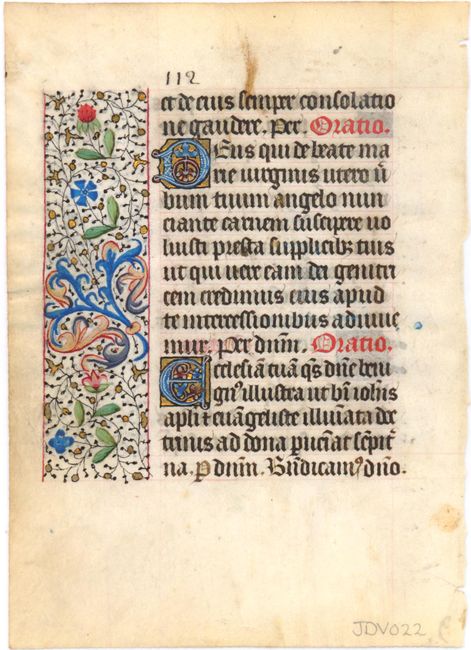 112
et de eius semper consolatio
ne gaudere. Per. Oratio.
Deus qui de beate ma
rie virginis utero v̄
bum tuum angelo nun
ciante carnem suscipere vo
luisti presta supplicibꝫ tuis
ut qui vere eam dei genitri
cem credimus eius apud
te intercessionibus adiuve
mur. Per dn̄m. Oratio.
Ecclesiā tuā qs̄ dn̄e beni
gnꝰ illustra ut bt̄i ioh̄is
apl̄i ⁊ euāgeliste illuīata doc
trinis ad dona puēiat sēpit̄
na. P dn̄um. Bn̄dicamꝰ dn̄o.
JDV022